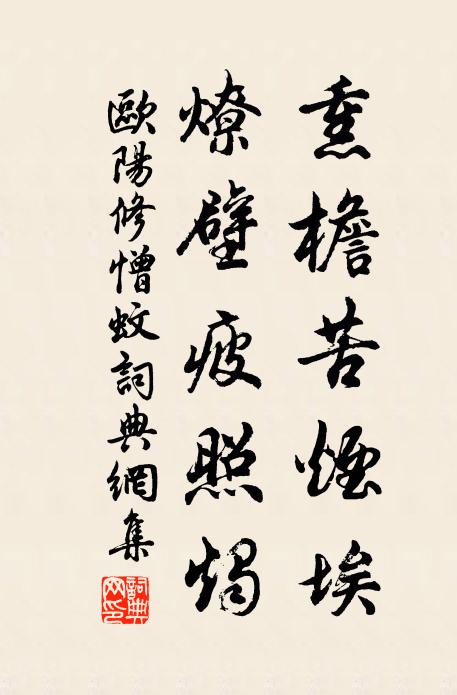 熏檐苦煙埃
燎壁疲照燭
歐陽修憎蚊詞典網集
詞典網印